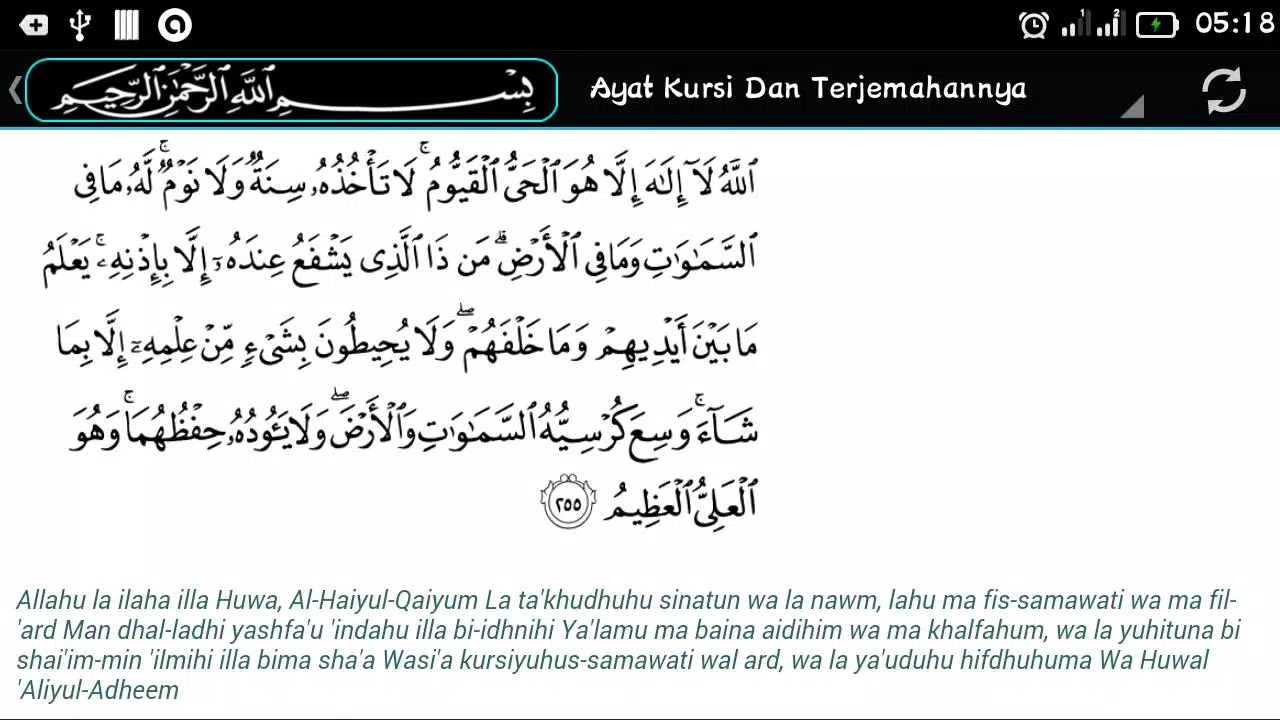 05:18
بِسْمِ ٱللَّهِ ٱلرَّحْمَٰنِ ٱلرَّحِيمِ
Ayat Kursi Dan Terjemahannya
ٱللَّهُ لَآ إِلَٰهَ إِلَّا هُوَ ٱلْحَىُّ ٱلْقَيُّومُ ۚ لَا تَأْخُذُهُۥ سِنَةٌ وَلَا نَوْمٌ ۚ لَّهُۥ مَا فِى
ٱلسَّمَٰوَٰتِ وَمَا فِى ٱلْأَرْضِ ۗ مَن ذَا ٱلَّذِى يَشْفَعُ عِندَهُۥٓ إِلَّا بِإِذْنِهِۦ ۚ يَعْلَمُ
مَا بَيْنَ أَيْدِيهِمْ وَمَا خَلْفَهُمْ ۖ وَلَا يُحِيطُونَ بِشَىْءٍ مِّنْ عِلْمِهِۦٓ إِلَّا بِمَا
شَآءَ ۚ وَسِعَ كُرْسِيُّهُ ٱلسَّمَٰوَٰتِ وَٱلْأَرْضَ ۖ وَلَا يَـُٔودُهُۥ حِفْظُهُمَا ۚ وَهُوَ
ٱلْعَلِىُّ ٱلْعَظِيمُ ٢٥٥
Allahu la ilaha illa Huwa, Al-Haiyul-Qaiyum La ta'khudhuhu sinatun wa la nawm, lahu ma fis-samawati wa ma fil-
'ard Man dhal-ladhi yashfa'u 'indahu illa bi-idhnihi Ya'lamu ma baina aidihim wa ma khalfahum, wa la yuhituna bi
shai'im-min 'ilmihi illa bima sha'a Wasi'a kursiyuhus-samawati wal ard, wa la ya'uduhu hifdhuhuma Wa Huwal
'Aliyul-Adheem